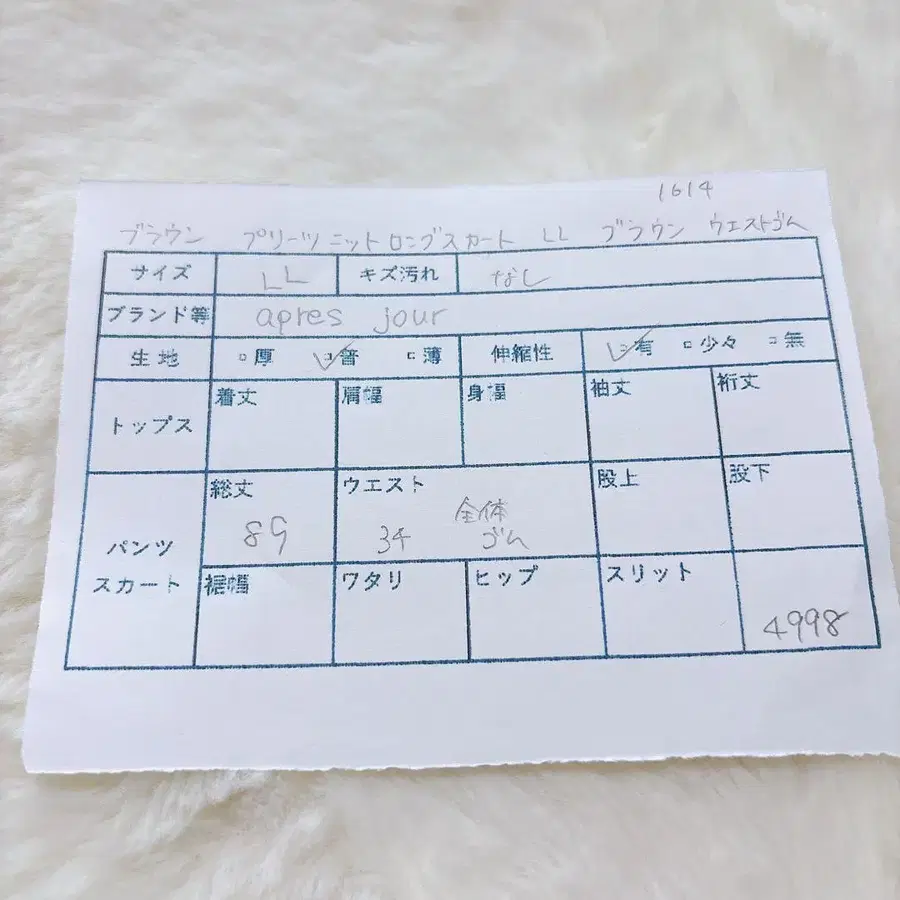 1614
ブラウン プリーツニットロングスカート LL ブラウン ウエストゴム
サイズ LL キズ汚れ なし
ブランド等 apres jour
生地 □厚 ☑普 □薄 伸縮性 ☑有 □少々 □無
トップス 着丈 肩幅 身幅 袖丈 裄丈
パンツ スカート 総丈 89 ウエスト 34 全体 ゴム 股上 股下
裾幅 ワタリ ヒップ スリット 4998